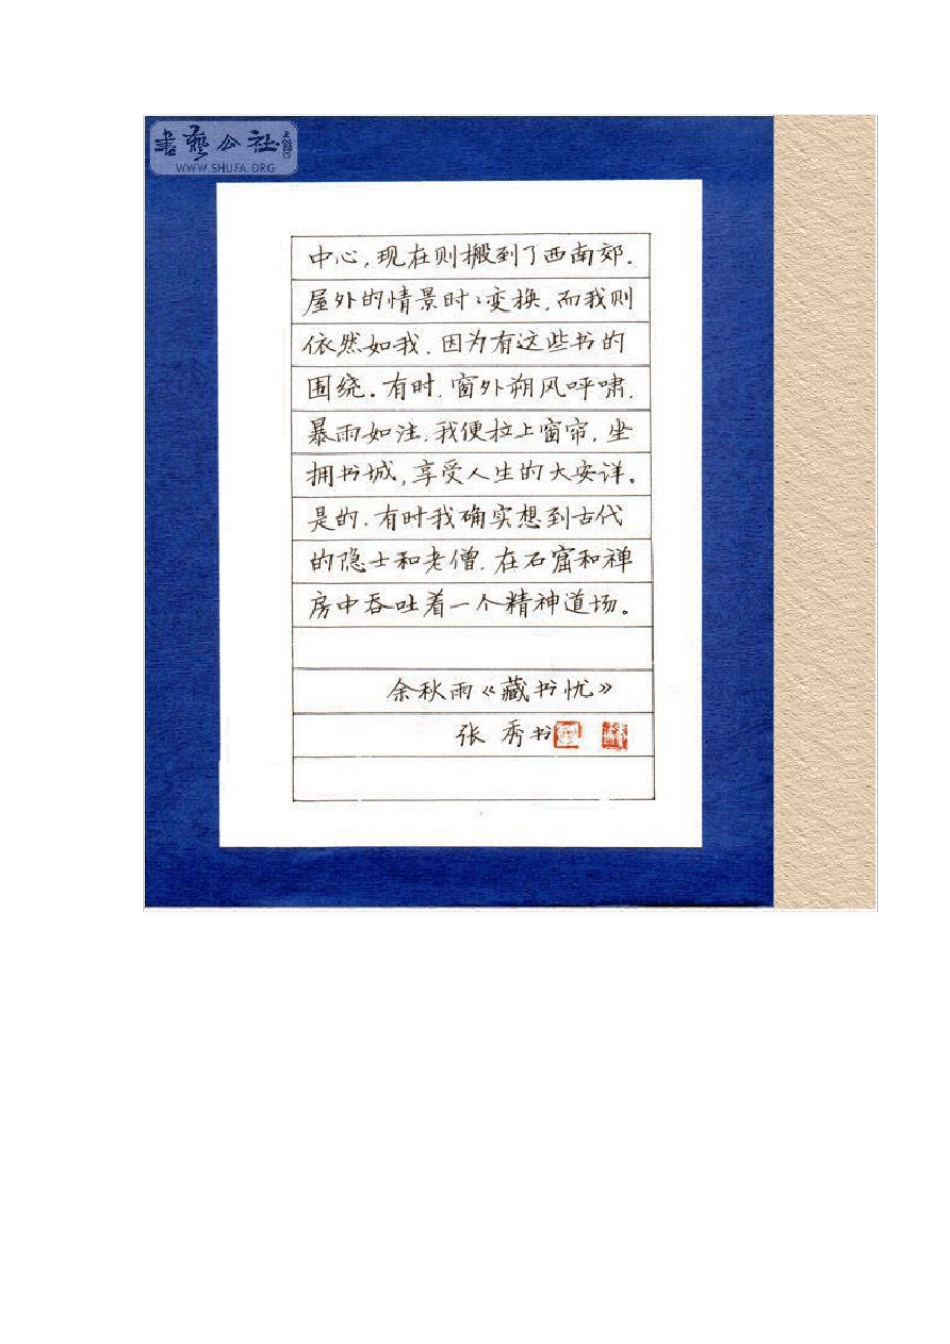 書藝公社
WWW.SHUFA.ORG
中心，现在则搬到了西南郊。
屋外的情景时：变换，而我则
依然如我，因为有这些书的
围绕。有时，窗外朔风呼啸，
暴雨如注，我便拉上窗帘，坐
拥书城，享受人生的大安详。
是的，有时我确实想到古代
的隐士和老僧，在石窟和禅
房中吞吐着一个精神道场。
余秋雨《藏书忧》
张秀书